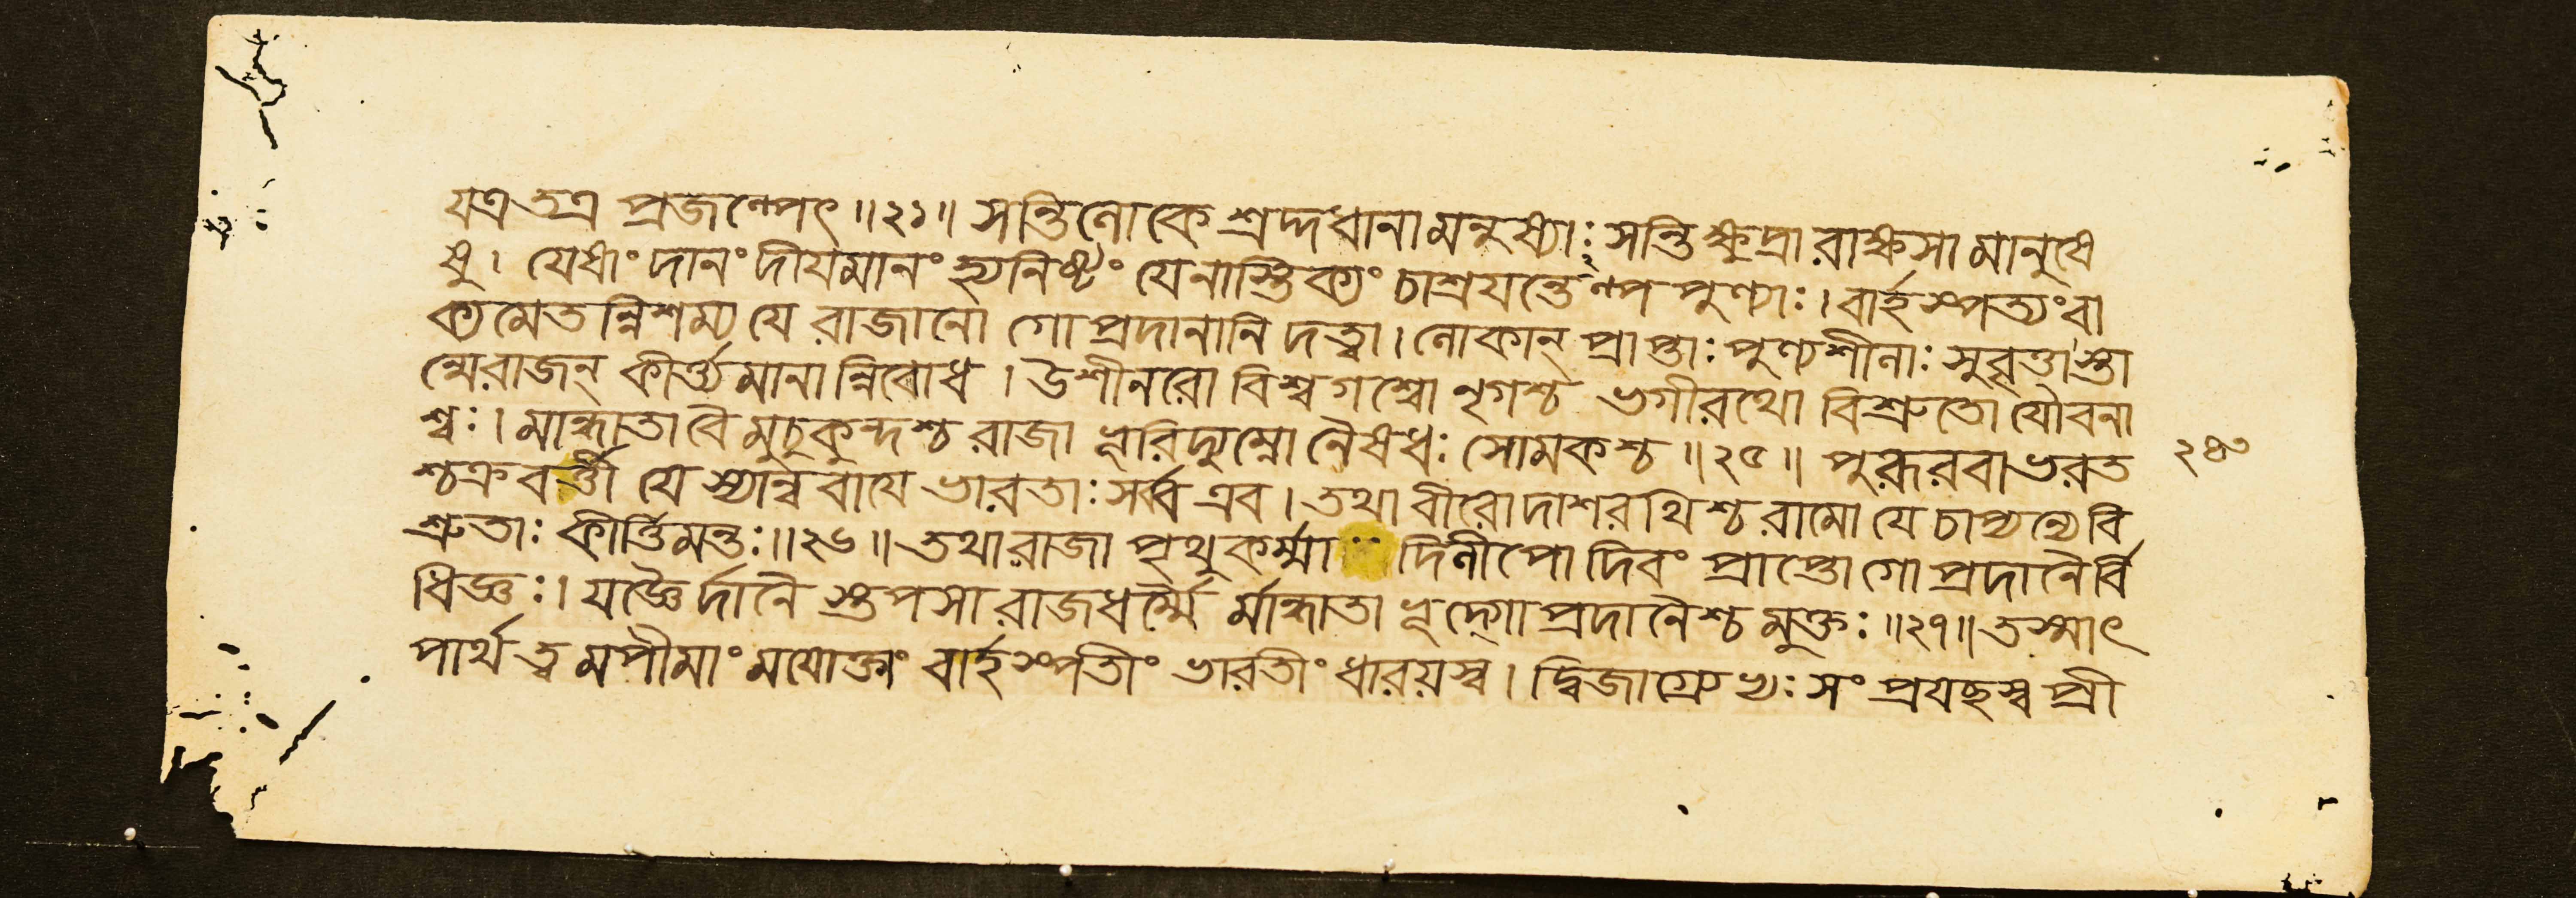 যত্র তত্র প্রজল্পেৎ ॥২১॥ সন্তি লোকে শ্রদ্দধানা মনুষ্যাঃ সন্তি ক্ষুদ্রা রাক্ষসা মানুষে
ষু। যেষাং দানং দীয়মানং হ্যনিষ্টং যে নাস্তিক্যং চাশ্রয়ন্তেল্প পুণ্যাঃ। বার্হস্পত্যং বা
ক্যমেতন্নিশম্য যে রাজানো গোপ্রদানানি দত্ত্বা। লোকান্ প্রাপ্তাঃ পুণ্যশীলাঃ সুবৃত্তাস্তা
ন্মে রাজন্ কীর্ত্ত্যমানান্নিবোধ। উশীনরো বিশ্বগশ্বো নৃগশ্চ ভগীরথো বিশ্রুতো যৌবনা
শ্বঃ। মান্ধাতা বৈ মুচুকুন্দশ্চ রাজা ভূরিদ্যুম্নো নৈষধঃ সোমকশ্চ ॥২৫॥ পুরূরবা ভরত
২৪০
শ্চক্রবর্ত্তী যস্যান্ববায়ে ভারতাঃ সর্ব্ব এব। তথা বীরো দাশরথিশ্চ রামো যে চাপ্যন্যে বি
শ্রুতাঃ কীর্ত্তিমন্তঃ॥২৬॥ তথা রাজা পৃথুকর্ম্মা দিলীপো দিবং প্রাপ্তো গোপ্রদানৈর্বি
ধিজ্ঞঃ। যজ্ঞৈর্দানৈস্তপসা রাজধর্ম্মৈর্মান্ধাতাভূদ্গোপ্রদানৈশ্চ মুক্তঃ ॥২৭॥ তস্মাৎ
পার্থ ত্বমপীমাং ময়োক্তাং বার্হস্পতীং ভারতীং ধারয়স্ব। দ্বিজাগ্রেভ্যঃ সংপ্রযছস্ব প্রী